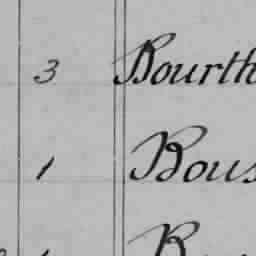 3 Bourth
1 Bous